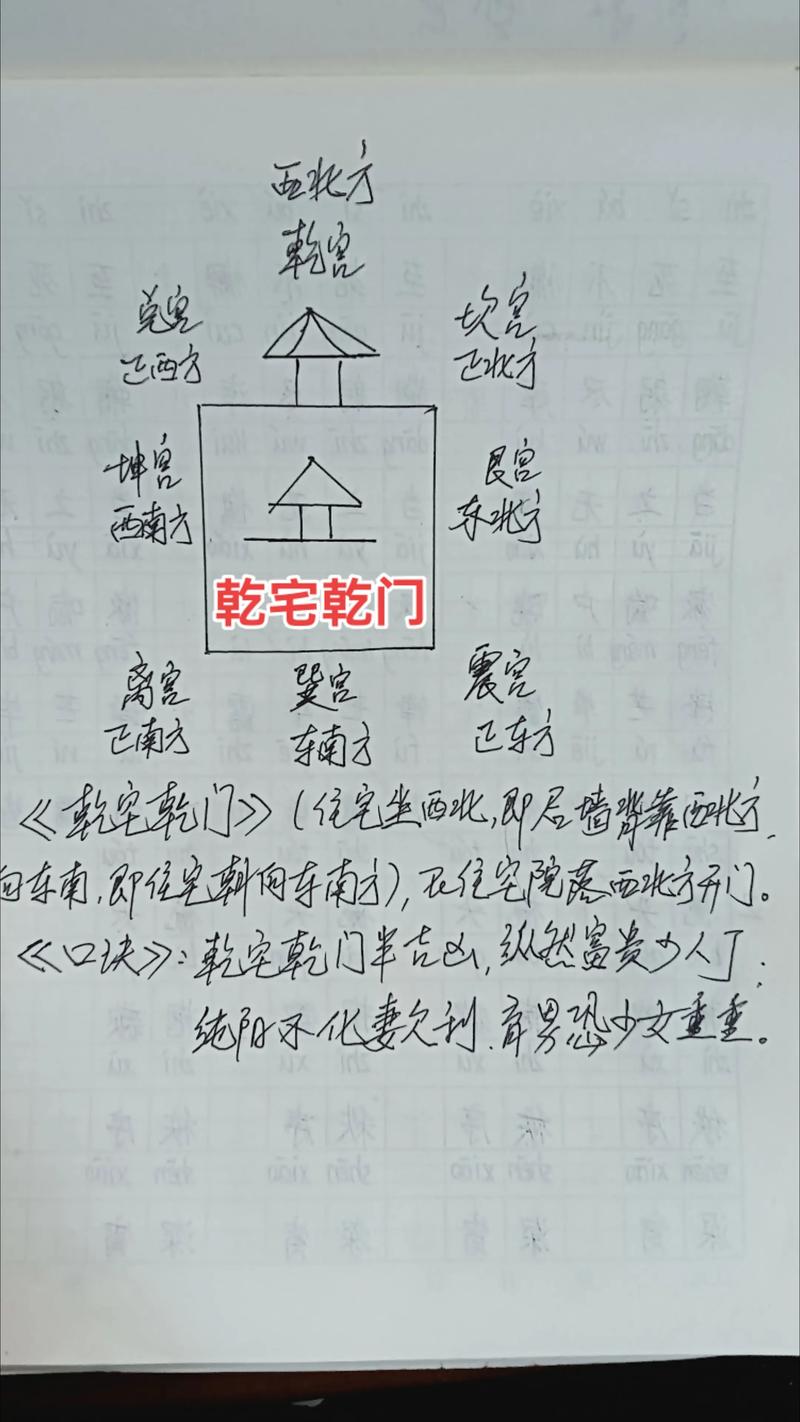 西北方
乾宫
兑宫
正西方
坎宫
正北方
坤宫
西南方
艮宫
东北方
乾宅乾门
离宫
正南方
巽宫
东南方
震宫
正东方
《乾宅乾门》(住宅坐西北,即后墙背靠西北方,
向东南,即住宅朝向东南方),在住宅院落西北方开门。
《口诀》:乾宅乾门半吉凶,纵然富贵少人丁;
纯阳不化妻欠利,育男恐少女重重。